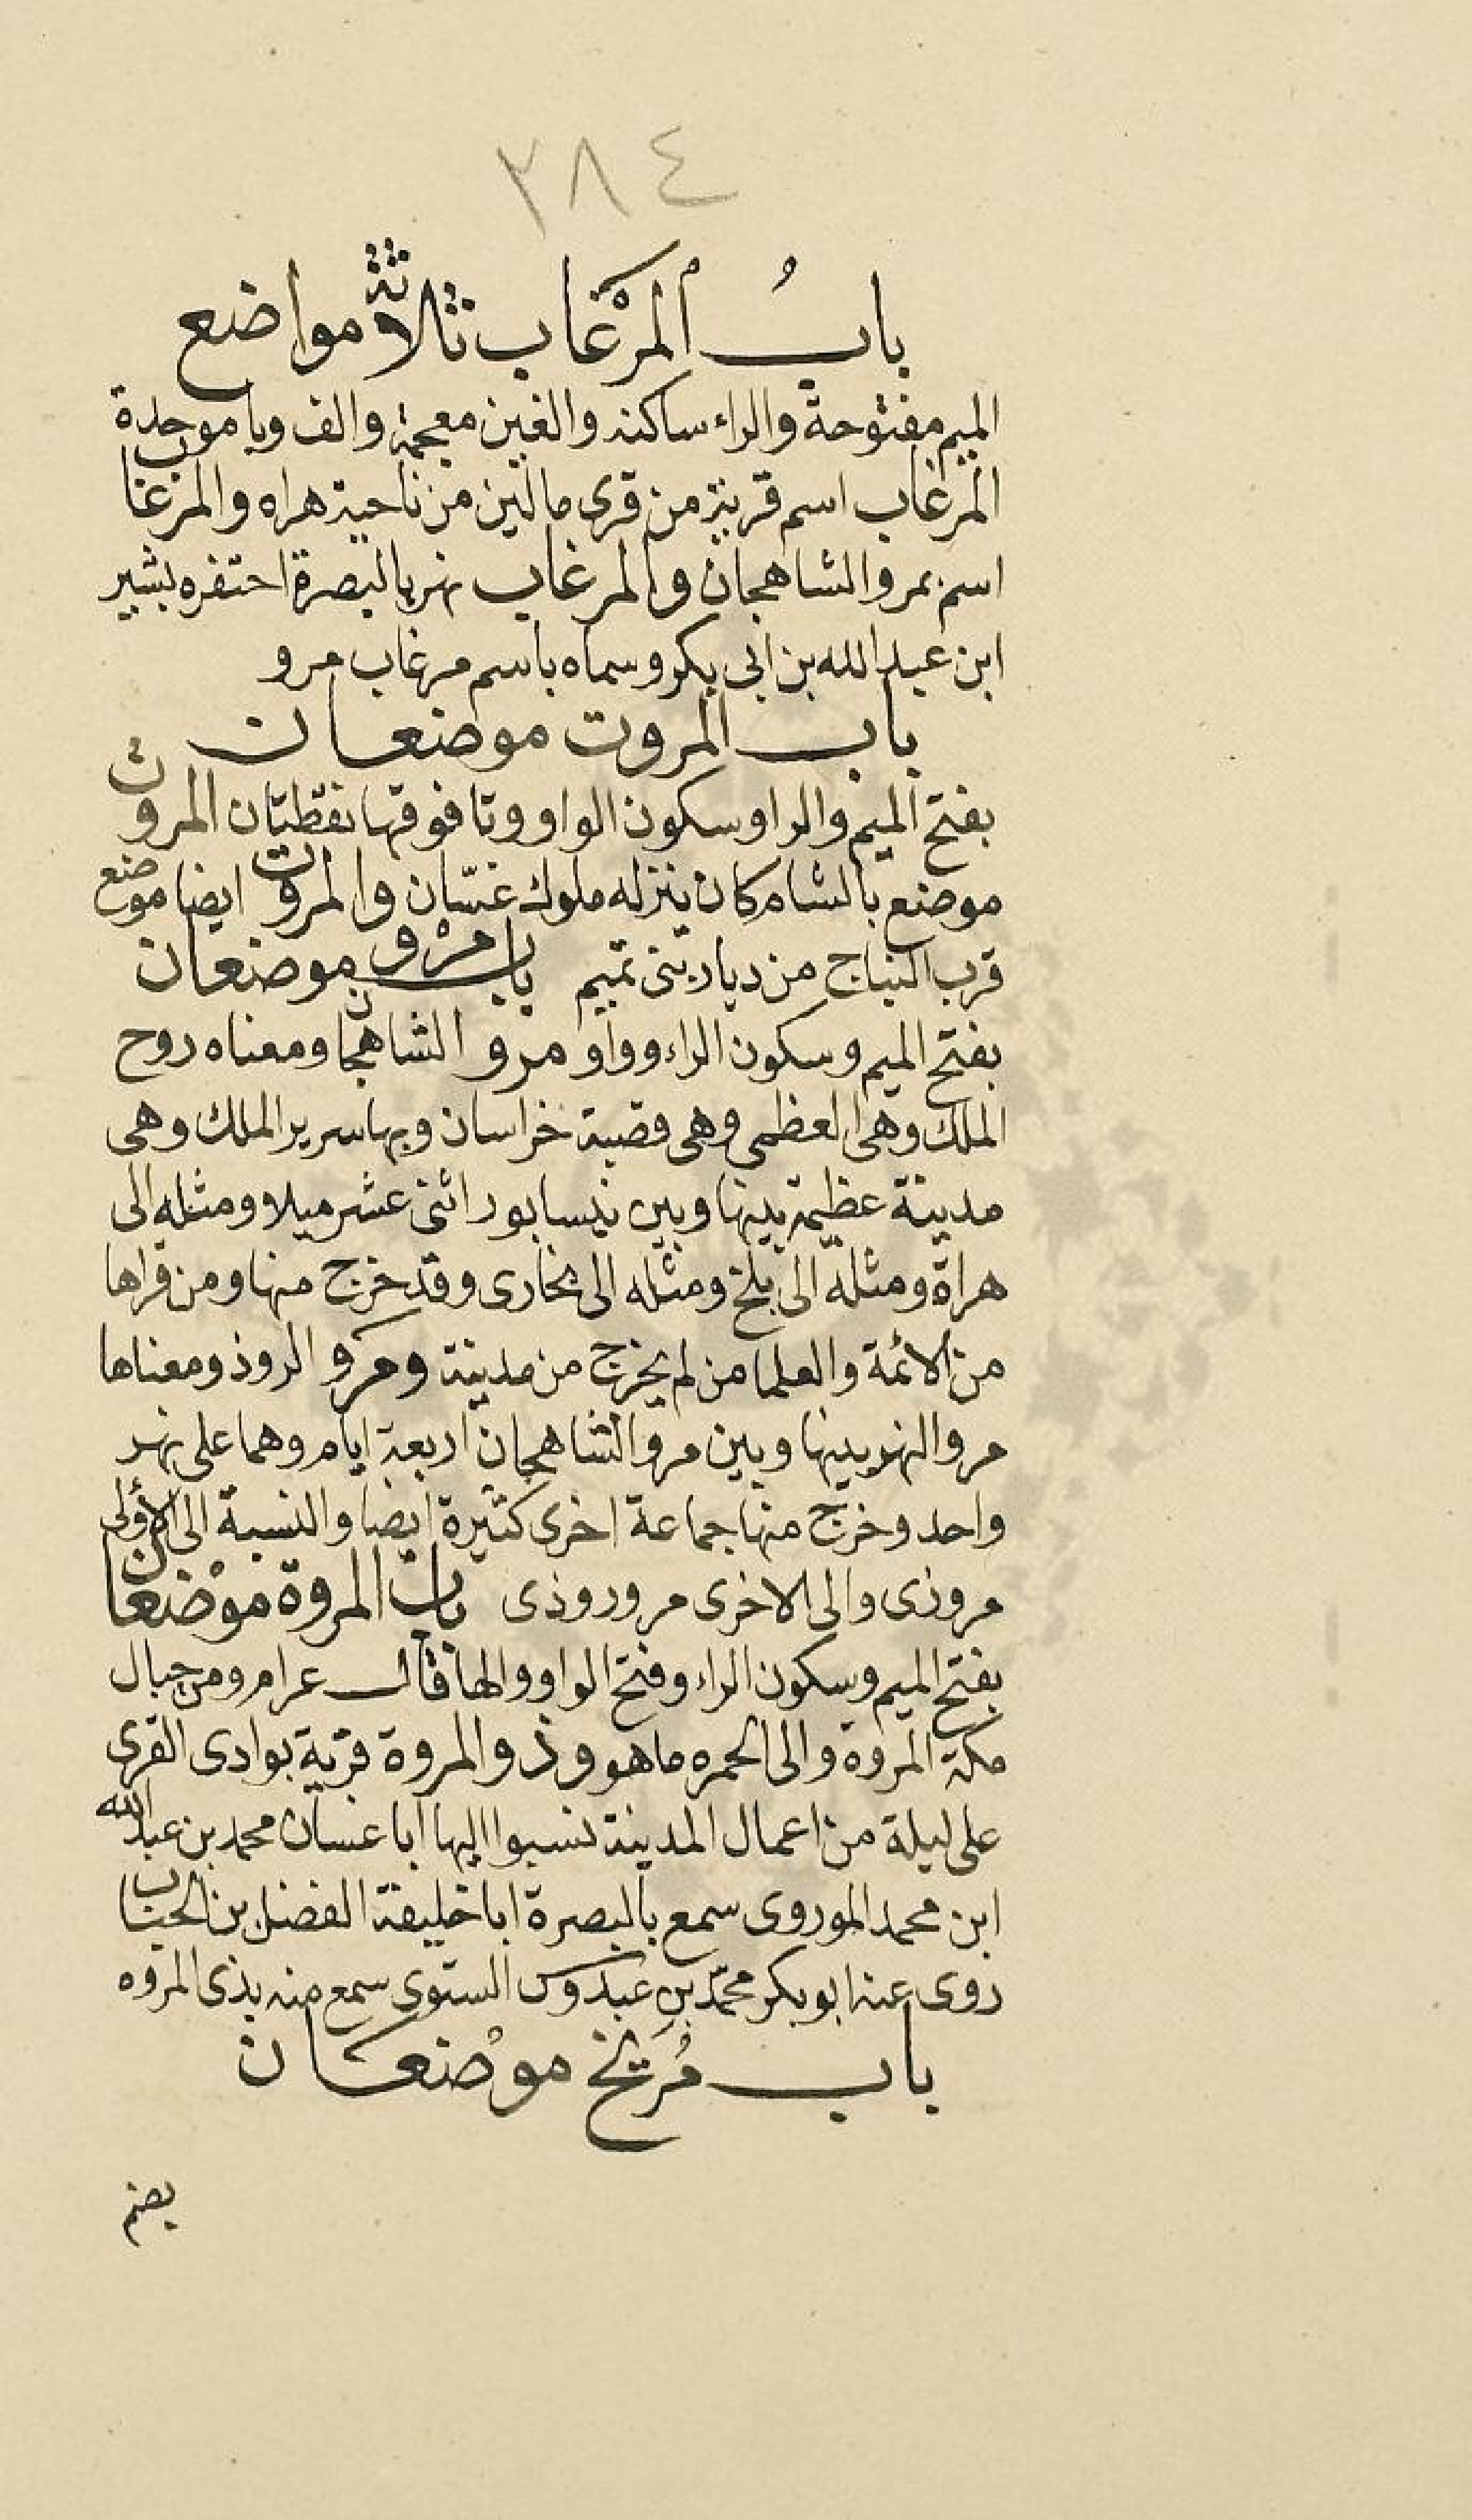 ٢٨٤
بابُ المرْغاب ثلاثة مواضع
الميم مفتوحة والراء ساكنه والغين معجمة والف وبا موحدة
المرغاب اسم قرية من قرى مالين من ناحية هراه والمرغاب
اسم بمرو الشاهجان والمرغاب نهر بالبصرة احتفره بشير
ابن عبد الله بن ابى بكر وسماه باسم مرغاب مرو
باب المروت موضعان
بفتح الميم والرا وسكون الواو وتا فوقها نقطتان المروت
موضع بالشام كان ينزله ملوك غسّان والمروت ايضا موضع
قرب النباج من ديار بنى تميم باب مرْو موضعان
بفتح الميم وسكون الراء وواو مرو الشاهجان ومعناه روح
الملك وهى العظمى وهى قصبة خراسان وبها سرير الملك وهى
مدينة عظيمة بينها وبين نيسابور اثنى عشر ميلا ومثله الى
هراة ومثله الى بلخ ومثله الى بخارى وقد خرج منها ومن قراها
من الائمة والعلما من لم يخرج من مدينة ومرو الروذ ومعناها
مرو النهر بينها وبين مرو الشاهجان اربعة ايام وهما على نهر
واحد وخرج منها جماعة اخرى كثيرة ايضا والنسبة الى الأولى
مروزى والى الاخرى مروروذى باب المروة موْضعان
بفتح الميم وسكون الراء وفتح الواو والها قال عرام ومن جبال
مكة المروة والى الحمره ما هو وذو المروة قرية بوادى القرى
على ليلة من اعمال المدينة نسبوا اليها ابا غسان محمد بن عبد الله
ابن محمد الموروى سمع بالبصرة ابا خليفة الفضل بن الحباب
روى عنه ابو بكر محمّد بن عبدوس الستوى سمع منه بذى المروه
باب مُرَيخ موْضعان
بضم